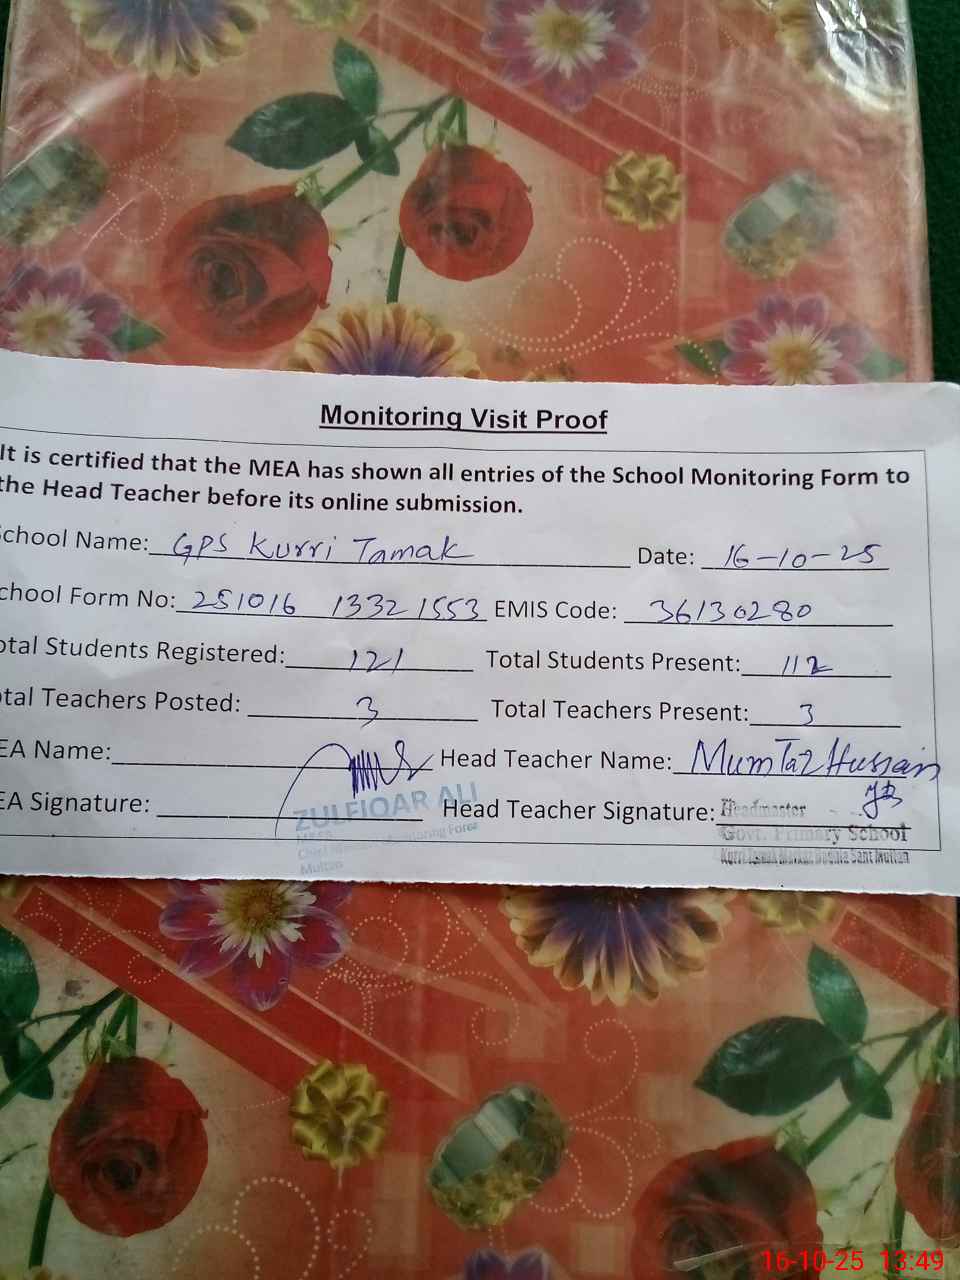 Monitoring Visit Proof
It is certified that the MEA has shown all entries of the School Monitoring Form to
the Head Teacher before its online submission.
School Name: GPS Kurri Tamak Date: 16-10-25
School Form No: 251016 13321553 EMIS Code: 36130280
otal Students Registered: 121 Total Students Present: 112
otal Teachers Posted: 3 Total Teachers Present: 3
EA Name: Head Teacher Name: Mumtaz Hussain
EA Signature: Head Teacher Signature:
ZULFIQAR ALI
Monitoring Force
Multan
Headmaster
Govt. Primary School
Kurri Tamak Markaz Sant Multan
16-10-25 13:49